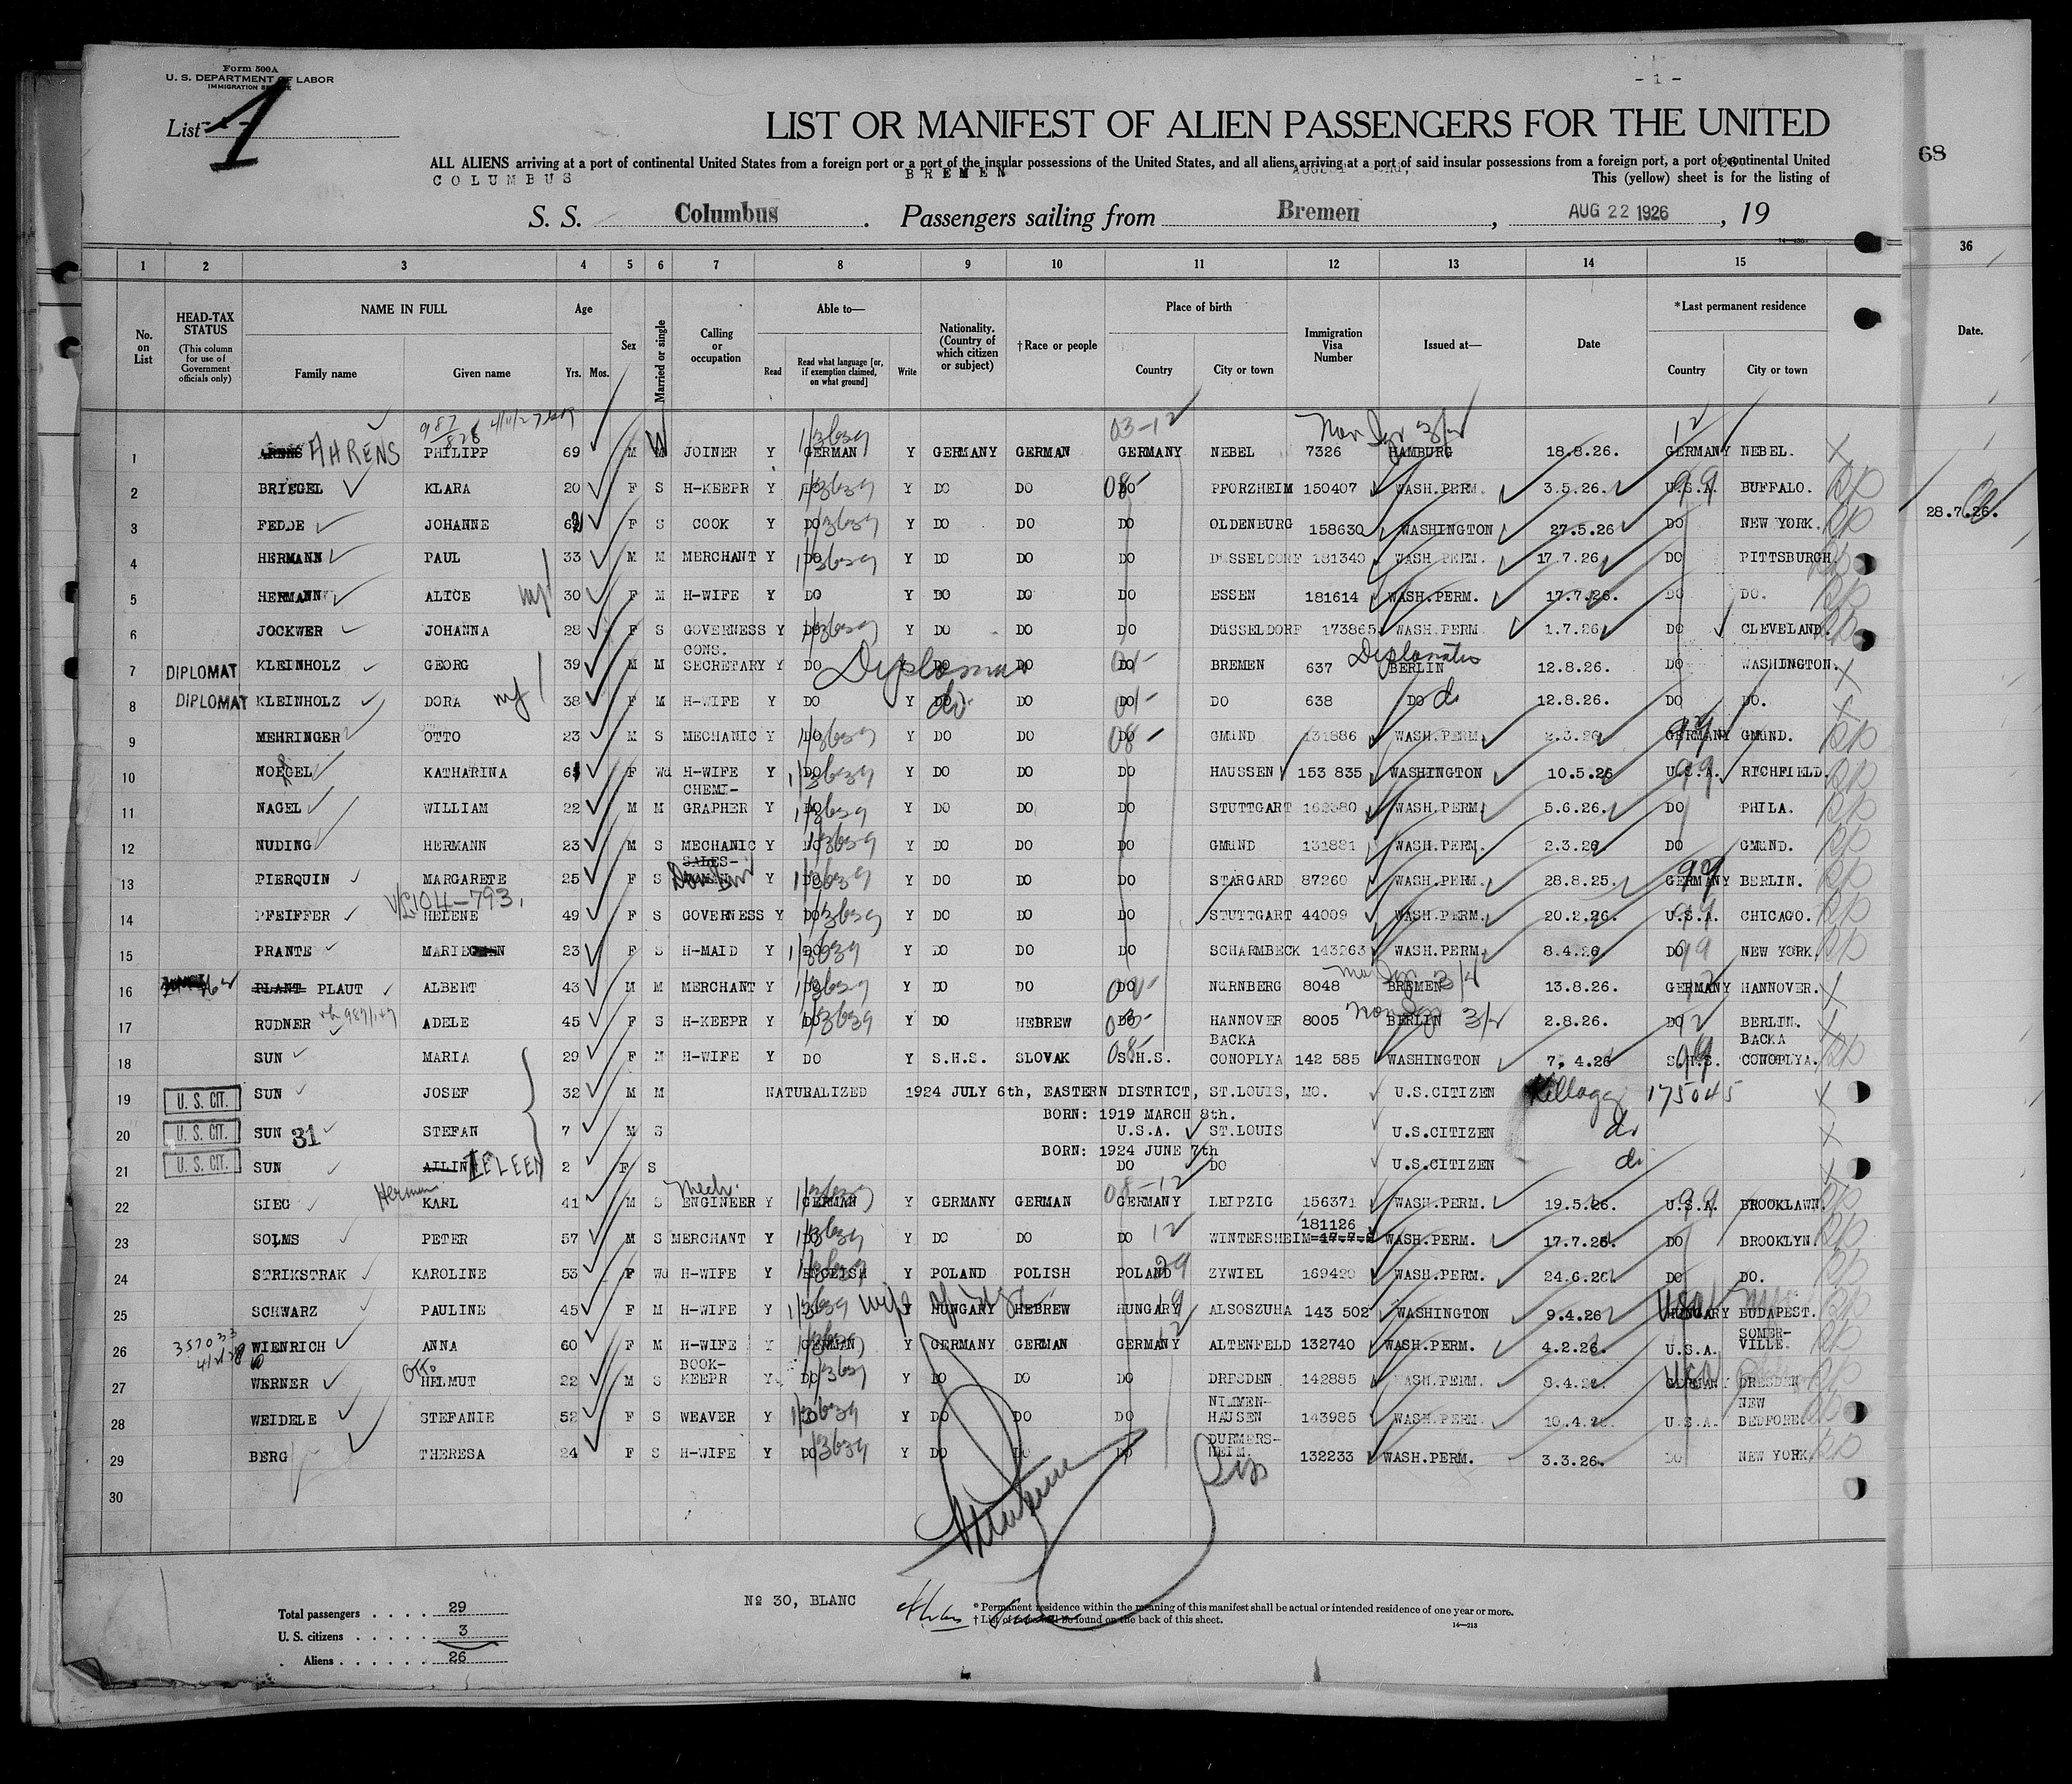 Form 500A
U. S. DEPARTMENT OF LABOR
IMMIGRATION SERVICE
- 1 -
List 1
LIST OR MANIFEST OF ALIEN PASSENGERS FOR THE UNITED
ALL ALIENS arriving at a port of continental United States from a foreign port or a port of the insular possessions of the United States, and all aliens arriving at a port of said insular possessions from a foreign port, a port of continental United
68
COLUMBUS BREMEN AUGUST
This (yellow) sheet is for the listing of
S. S. Columbus. Passengers sailing from Bremen, AUG 22 1926, 19
1 2 3 4 5 6 7 8 9 10 11 12 13 14 15 36
No. on List
HEAD-TAX STATUS
(This column for use of Government officials only)
NAME IN FULL
Family name Given name
Age
Yrs. Mos.
Sex
Married or single
Calling or occupation
Able to—
Read
Read what language [or, if exemption claimed, on what ground]
Write
Nationality. (Country of which citizen or subject)
†Race or people
Place of birth
Country City or town
Immigration Visa Number
Issued at—
Date
*Last permanent residence
Country City or town
Date.
987/828
03-12 12
1 AHRENS PHILIPP 69 M W JOINER Y GERMAN Y GERMANY GERMAN GERMANY NEBEL 7326 HAMBURG 18.8.26. GERMANY NEBEL.
2 BRIEGEL KLARA 20 F S H-KEEPR Y DO Y DO DO DO PFORZHEIM 150407 WASH.PERM. 3.5.26. U.S.A. BUFFALO.
28.7.26.
3 FEDDE JOHANNE 62 F S COOK Y DO Y DO DO DO OLDENBURG 158630 WASHINGTON 27.5.26 DO NEW YORK.
4 HERMANN PAUL 33 M M MERCHANT Y DO Y DO DO DO DUSSELDORF 181340 WASH PERM. 17.7.26 DO PITTSBURGH
5 HERMANN ALICE 30 F M H-WIFE Y DO Y DO DO DO ESSEN 181614 WASH.PERM. 17.7.26. DO DO.
6 JOCKWER JOHANNA 28 F S GOVERNESS Y DO Y DO DO DO DüSSELDORF 173865 WASH PERM 1.7.26 DO CLEVELAND.
7 DIPLOMAT KLEINHOLZ GEORG 39 M M CONS. SECRETARY Y DO Diplomat Y DO DO DO BREMEN 637 Diplomatic BERLIN 12.8.26. DO WASHINGTON.
8 DIPLOMAT KLEINHOLZ DORA 38 F M H-WIFE Y DO Y DO do DO DO DO 638 DO do 12.8.26. DO DO.
9 MEHRINGER OTTO 23 M S MECHANIC Y DO Y DO DO DO GMüND 131886 WASH.PERM. 2.3.26 GERMANY GMüND.
10 NOEGEL KATHARINA 61 F Wd H-WIFE Y DO Y DO DO DO HAUSSEN 153 835 WASHINGTON 10.5.26 U.S.A. RICHFIELD.
11 NAGEL WILLIAM 22 M M CHEMI-GRAPHER Y DO Y DO DO DO STUTTGART WASH.PERM. 5.6.26. DO PHILA.
12 NUDING HERMANN 23 M S MECHANIC Y DO Y DO DO DO GMüND 131881 WASH.PERM. 2.3.26. DO GMüND.
13 PIERQUIN MARGARETE 25 F S SALES- Y DO Y DO DO DO STARGARD 87260 WASH.PERM. 28.8.25. GERMANY BERLIN.
V/L104-793,
14 PFEIFFER HELENE 49 F S GOVERNESS Y DO Y DO DO DO STUTTGART 44009 WASH.PERM. 20.2.26. U.S.A. CHICAGO.
15 PRANTE MARIE 23 F S H-MAID Y DO Y DO DO DO SCHARMBECK 143263 WASH.PERM. 8.4.26. DO NEW YORK.
16 PLANT PLAUT ALBERT 43 M M MERCHANT Y DO Y DO DO DO NüRNBERG 8048 BREMEN 3/4 13.8.26. GERMANY HANNOVER.
17 RUDNER ADELE 45 F S H-KEEPR Y DO Y DO HEBREW DO HANNOVER 8005 BERLIN 2.8.26. DO BERLIN.
18 SUN MARIA 29 F M H-WIFE Y DO Y S.H.S. SLOVAK S.H.S. BACKA CONOPLYA 142 585 WASHINGTON 7.4.26 S.H.S. BACKA CONOPLYA.
19 U.S. CIT. SUN JOSEF 32 M M NATURALIZED 1924 JULY 6th, EASTERN DISTRICT, ST.LOUIS, MO. U.S.CITIZEN Kellogg 175045
BORN: 1919 MARCH 8th.
20 U.S. CIT. SUN 31 STEFAN 7 M S U.S.A. ST.LOUIS U.S.CITIZEN do
BORN: 1924 JUNE 7th
21 U.S. CIT. SUN AILIN IELEEN 2 F S DO DO U.S.CITIZEN do
22 SIEG Herman KARL 41 M S Mech. ENGINEER Y GERMAN Y GERMANY GERMAN GERMANY LEIPZIG 156371 WASH.PERM. 19.5.26. U.S.A. BROOKLAWN.
23 SOLMS PETER 57 M S MERCHANT Y DO Y DO DO DO WINTERSHEIM 181126 WASH.PERM. 17.7.26. DO BROOKLYN.
24 STRIKSTRAK KAROLINE 53 F Wd H-WIFE Y ENGLISH Y POLAND POLISH POLAND ZYWIEL 169420 WASH.PERM. 24.6.26. DO DO.
25 SCHWARZ PAULINE 45 F M H-WIFE Y DO wife of Y HUNGARY HEBREW HUNGARY ALSOSZUHA 143 502 WASHINGTON 9.4.26 HUNGARY USA BUDAPEST.
26 WIENRICH ANNA 60 F M H-WIFE Y GERMAN Y GERMANY GERMAN GERMANY ALTENFELD 132740 WASH.PERM. 4.2.26. U.S.A. SOMER-VILLE.
27 WERNER Otto HELMUT 22 M S BOOK-KEEPR Y DO Y DO DO DO DRESDEN 142885 WASH.PERM. 8.4.26. GERMANY USA DRESDEN
28 WEIDELE STEFANIE 52 F S WEAVER Y DO Y DO DO DO NILMEN-HAUSEN 143985 WASH.PERM 10.4.26. U.S.A. NEW BEDFORD
29 BERG THERESA 24 F S H-WIFE Y DO Y DO DO DO DURMERS-HEIM. 132233 WASH.PERM. 3.3.26. DO NEW YORK.
30
Nº 30, BLANC
Total passengers . . . . 29
U. S. citizens . . . . . 3
Aliens . . . . . . 26
* Permanent residence within the meaning of this manifest shall be actual or intended residence of one year or more.
† List of races will be found on the back of this sheet.
14—213